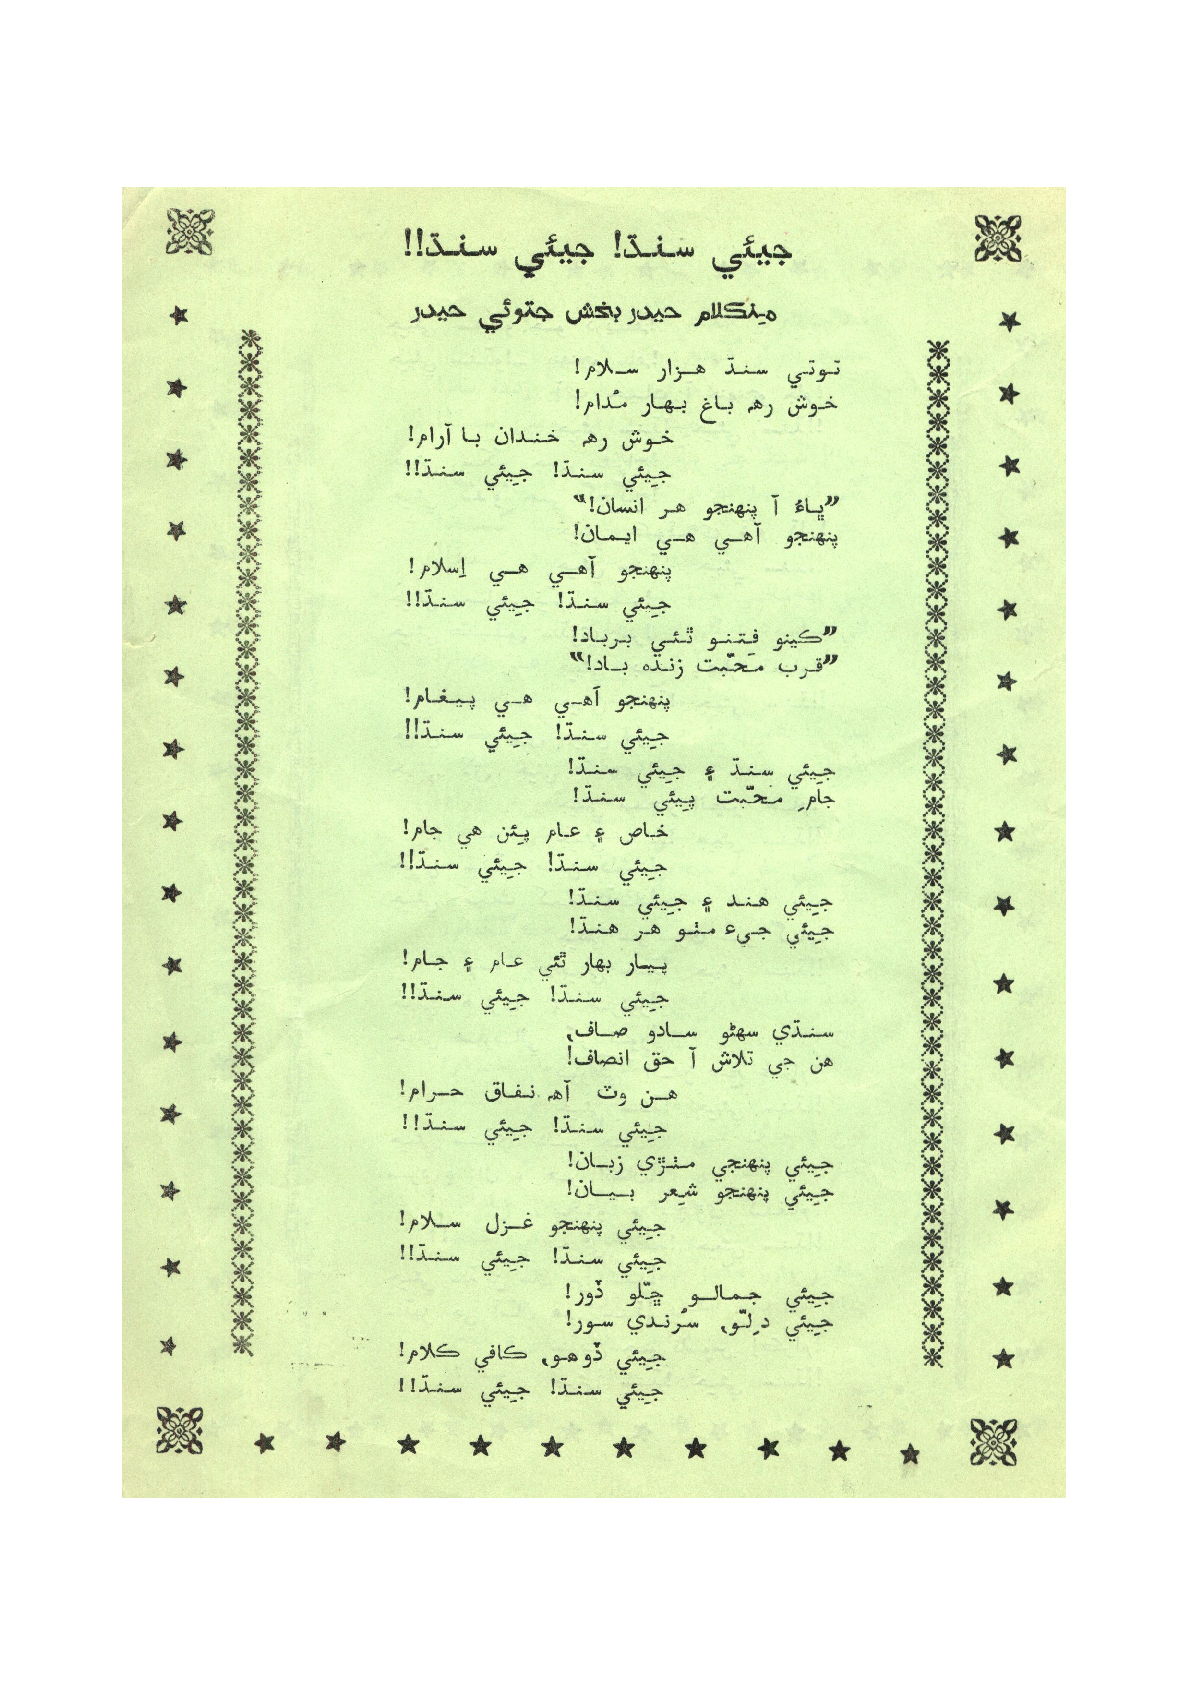 جيئي سنڌ! جيئي سنڌ!!
مِنڪلام حيدر بخش جتوئي حيدر
توتي سنڌ هزار سلام!
خوش رهہ باغ بهار مُدام!
خوش رهہ خندان با آرام!
جيئي سنڌ! جيئي سنڌ!!
”ڀاءُ آ پنهنجو هر انسان!“
پنهنجو آهي هي ايمان!
پنهنجو آهي هي اِسلام!
جيئي سنڌ! جيئي سنڌ!!
”ڪينو فِتنو ٿئي برباد!
”قرب مَحَبّت زنده باد!“
پنهنجو آهي هي پيغام!
جيئي سنڌ! جيئي سنڌ!!
جيئي سنڌ ۽ جيئي سنڌ!
جامِ محَبّت پيئي سنڌ!
خاص ۽ عام پيئن هي جام!
جيئي سنڌ! جيئي سنڌ!!
جيئي هند ۽ جيئي سنڌ!
جيئي جيءَ مٺو هر هنڌ!
پيار بهار ٿئي عام ۽ جام!
جيئي سنڌ! جيئي سنڌ!!
سنڌي سهڻو سادو صاف،
هن جي تلاش آ حق انصاف!
هن وٽ آهہ نفاق حرام!
جيئي سنڌ! جيئي سنڌ!!
جيئي پنهنجي مٺڙي زبان!
جيئي پنهنجو شِعر بيان!
جيئي پنهنجو غزل سلام!
جيئي سنڌ! جيئي سنڌ!!
جيئي جمالو ڇلّو ڏور!
جيئي دِلّو، سُرندي سور!
جيئي ڏوهو، ڪافي ڪلام!
جيئي سنڌ! جيئي سنڌ!!